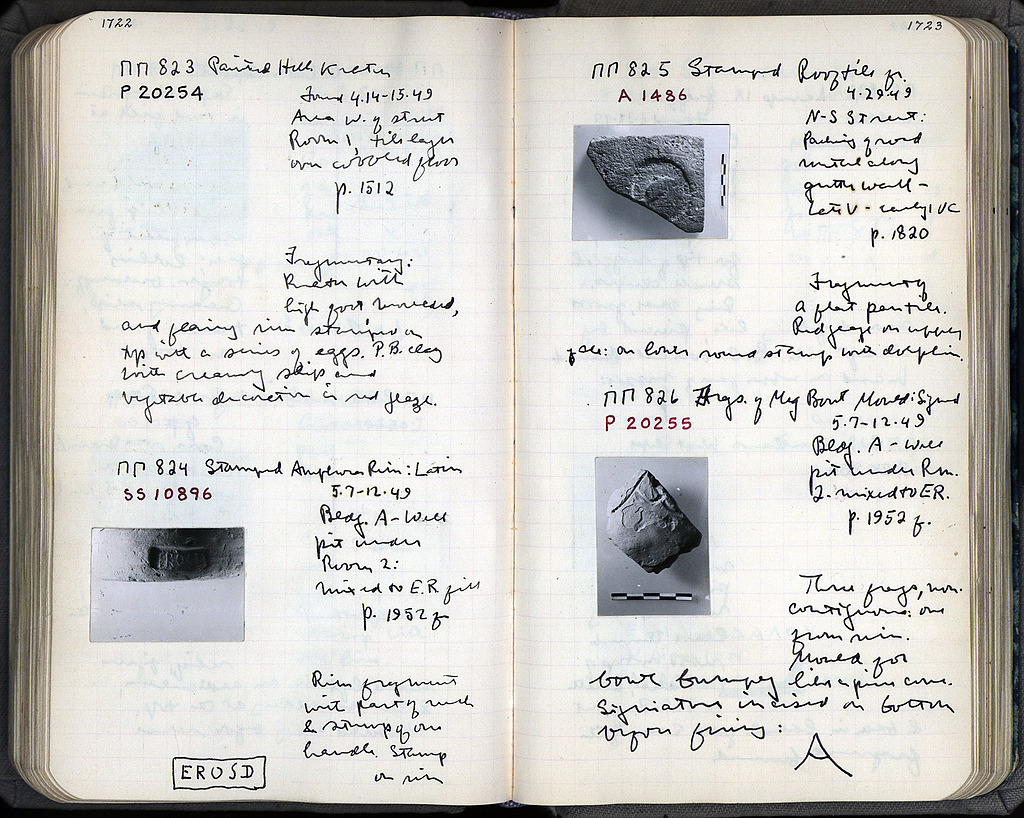 1722
ΠΠ 823 Painted Hell. Krater
P 20254
Found 4.14-15.49
Area W. of street
Room 1, tile layer
over cobbled floor
p. 1512
Fragmentary:
Krater with
high foot
and flaring rim stamped on
top with a series of eggs. P.B. clay
with creamy slip and
vegetable decoration in red glaze.
ΠΠ 824 Stamped Amphora Rim: Latin
SS 10896
5.7-12.49
Bldg. A - Well
pit under
Room 2:
mixed to E.R. fill
p. 1952 f.
Rim fragment
with part of neck
& stump of one
handle. Stamp
on rim
EROSD
1723
ΠΠ 825 Stamped Rooftile fr.
A 1486
4.29.49
N-S Street:
Packing of road
metal along
wall -
late V - early IVC
p. 1820
Fragment of
a flat pan tile.
Red glaze on upper
face: on lower round stamp with dolphin.
ΠΠ 826 Frgs. of Meg. Bowl Mould: Signed
P 20255
5.7-12.49
Bldg. A - Well
pit under Rm.
2. mixed to ER.
p. 1952 f.
Three frags, non-
contiguous: one
from rim.
Mould for
bowl bumpy like a pine cone.
Signature incised on bottom
before firing:
A